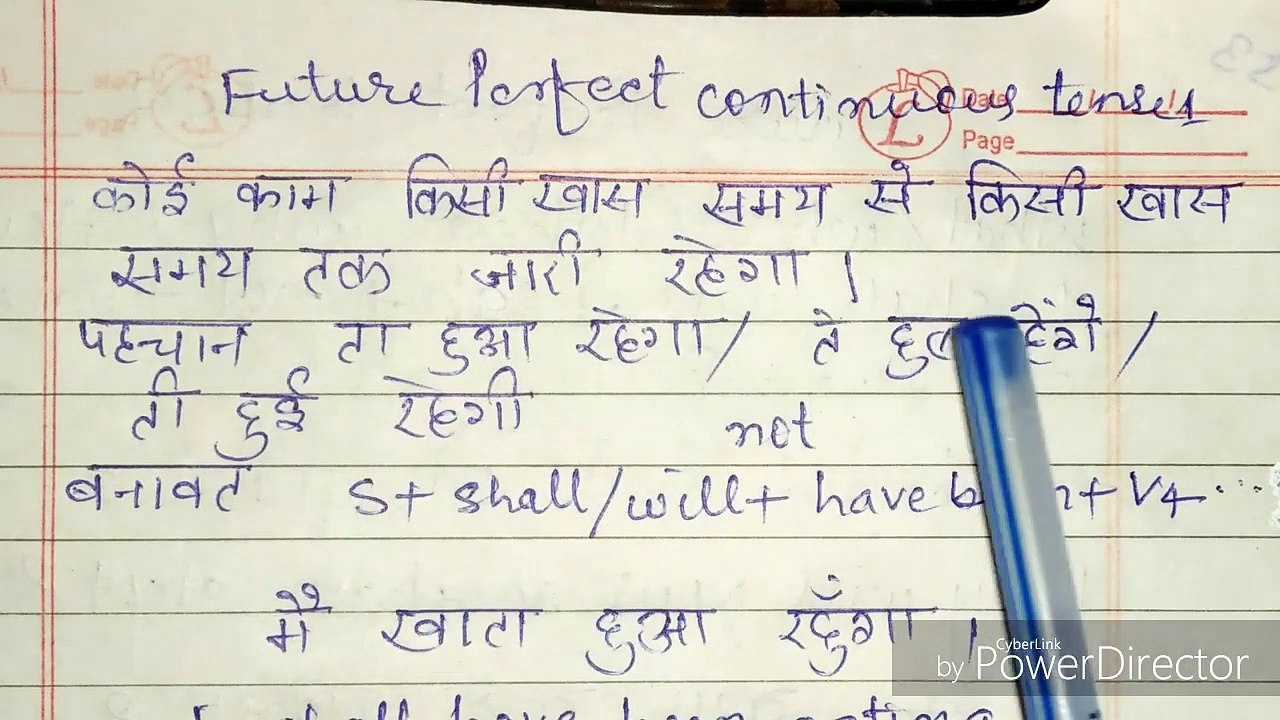 Future Perfect continuous tenses
Date
Page
कोई काम किसी खास समय से किसी खास
समय तक जारी रहेगा ।
पहचान ता हुआ रहेगा / ते हुए रहेंगे /
ती हुई रहेगी
not
बनावट S + shall/will + have been + V4 ...
मै खाता हुआ रहुँगा ।
CyberLink
by PowerDirector
I shall have been eating